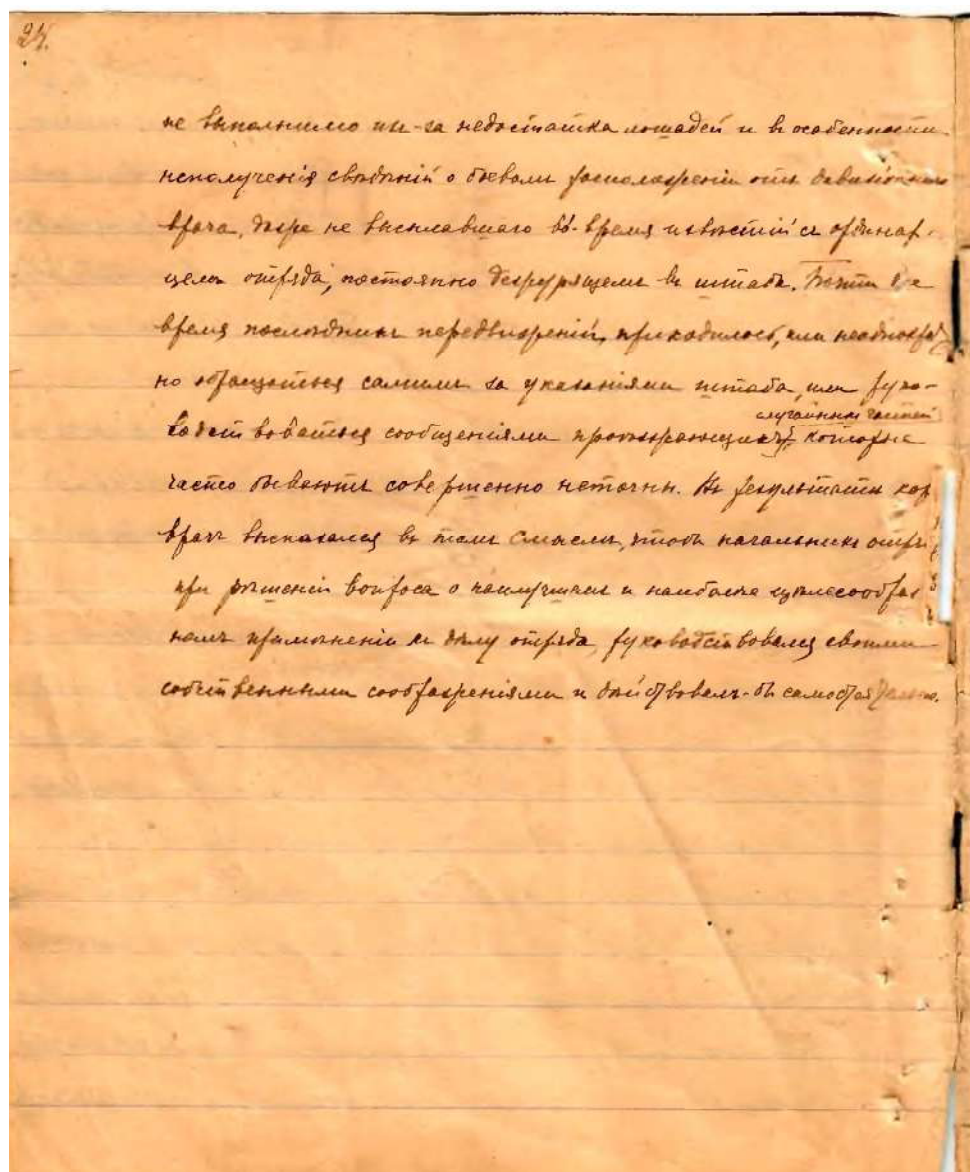 24.
не выполнимо из-за недостатка лошадей и в особенности
неполученія свѣдѣній о боевомъ расположеніи отъ дивизіоннаго
врача, даже не высылавшаго во-время извѣстій съ ординар-
цемъ отряда, постоянно дежурящемъ въ штабѣ. Почти все
время послѣднихъ передвиженій, приходилось, или неоднокра
но обращаться самимъ за указаніями штаба, или руко-
случайныхъ частей
водствоваться сообщеніями проѣзжающихъ, которыя
часто бываютъ совершенно неточны. Въ результатѣ кор
врачъ высказался въ томъ смыслѣ, чтобъ начальникъ отря
при рѣшеніи вопроса о наилучшемъ и наиболѣе цѣлесообраз
номъ примѣненіи къ дѣлу отряда, руководствовался своими
собственными соображеніями и дѣйствовалъ-бы самостоятельно.